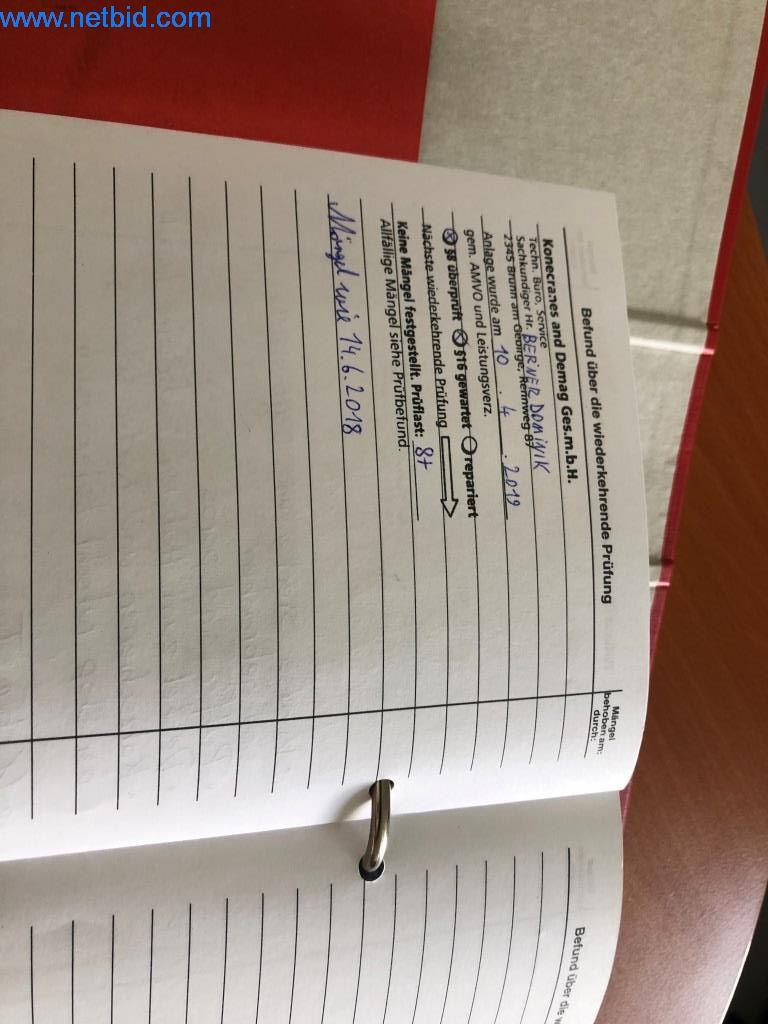 www.netbid.com
Befund über die wiederkehrende Prüfung
Mängel
behoben am:
durch:
Konecranes and Demag Ges.m.b.H.
Techn. Büro, Service
Sachkundiger Hr. BERNER DOMINIK
2345 Brunn am Gebirge, Rennweg 87
Anlage wurde am 10 . 4 . 2019
gem. AMVO und Leistungsverz.
§8 überprüft §16 gewartet repariert
Nächste wiederkehrende Prüfung
Keine Mängel festgestellt. Prüflast: 8t
Allfällige Mängel siehe Prüfbefund.
Mängel wie 14.6.2018
Befund über die